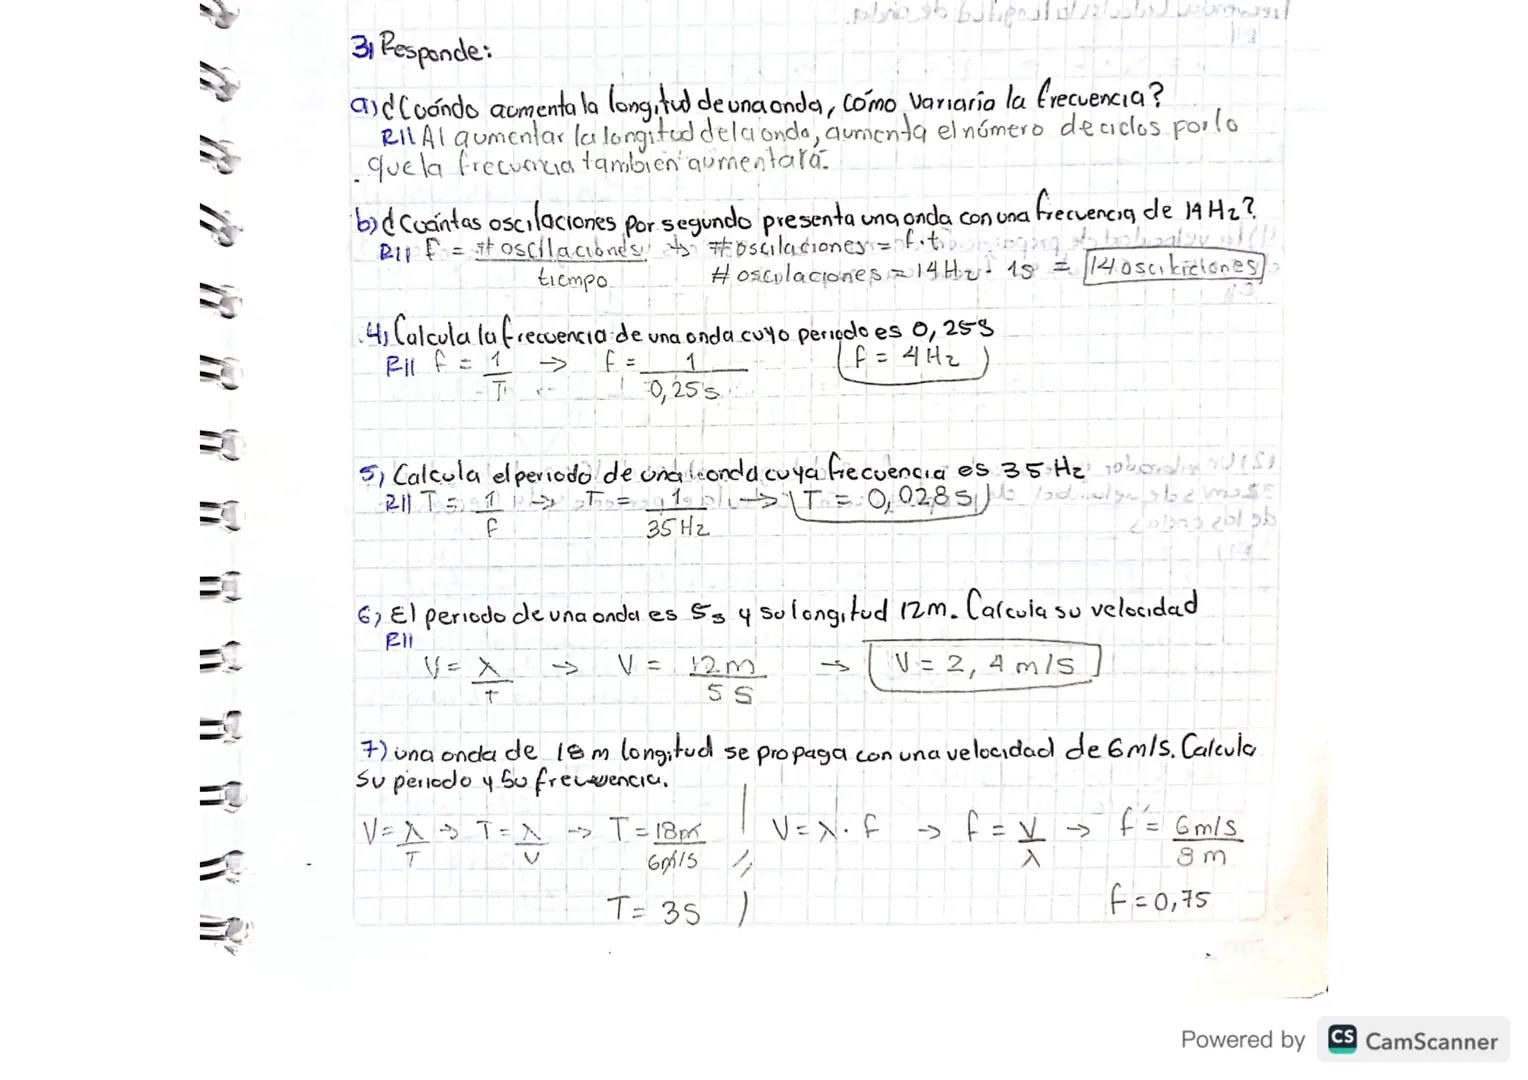 3) Responde:
a) ¿Cuándo aumenta la longitud de una onda, cómo variaría la frecuencia?
R// Al aumentar la longitud de la onda, aumenta el número de ciclos por lo
que la frecuencia también aumentará.
b) ¿Cuántas oscilaciones por segundo presenta una onda con una frecuencia de 14 Hz?
R// f = # oscilaciones / tiempo → # oscilaciones = f · t
# oscilaciones = 14 Hz · 1s = 14 oscilaciones
4) Calcula la frecuencia de una onda cuyo periodo es 0,25s
R// f = 1/T → f = 1/0,25s f = 4 Hz
5) Calcula el periodo de una onda cuya frecuencia es 35 Hz
R// T = 1/f → T = 1/35 Hz → T = 0,028 s
6) El periodo de una onda es 5s y su longitud 12m. Calcula su velocidad
R//
V = λ/T → V = 12m/5s → V = 2,4 m/s
7) una onda de 18 m longitud se propaga con una velocidad de 6m/s. Calcula
su periodo y su frecuencia.
V = λ/T → T = λ/V → T = 18m/6m/s V = λ · f → f = V/λ → f = 6m/s/8m
T = 3s f = 0,75
Powered by CS CamScanner